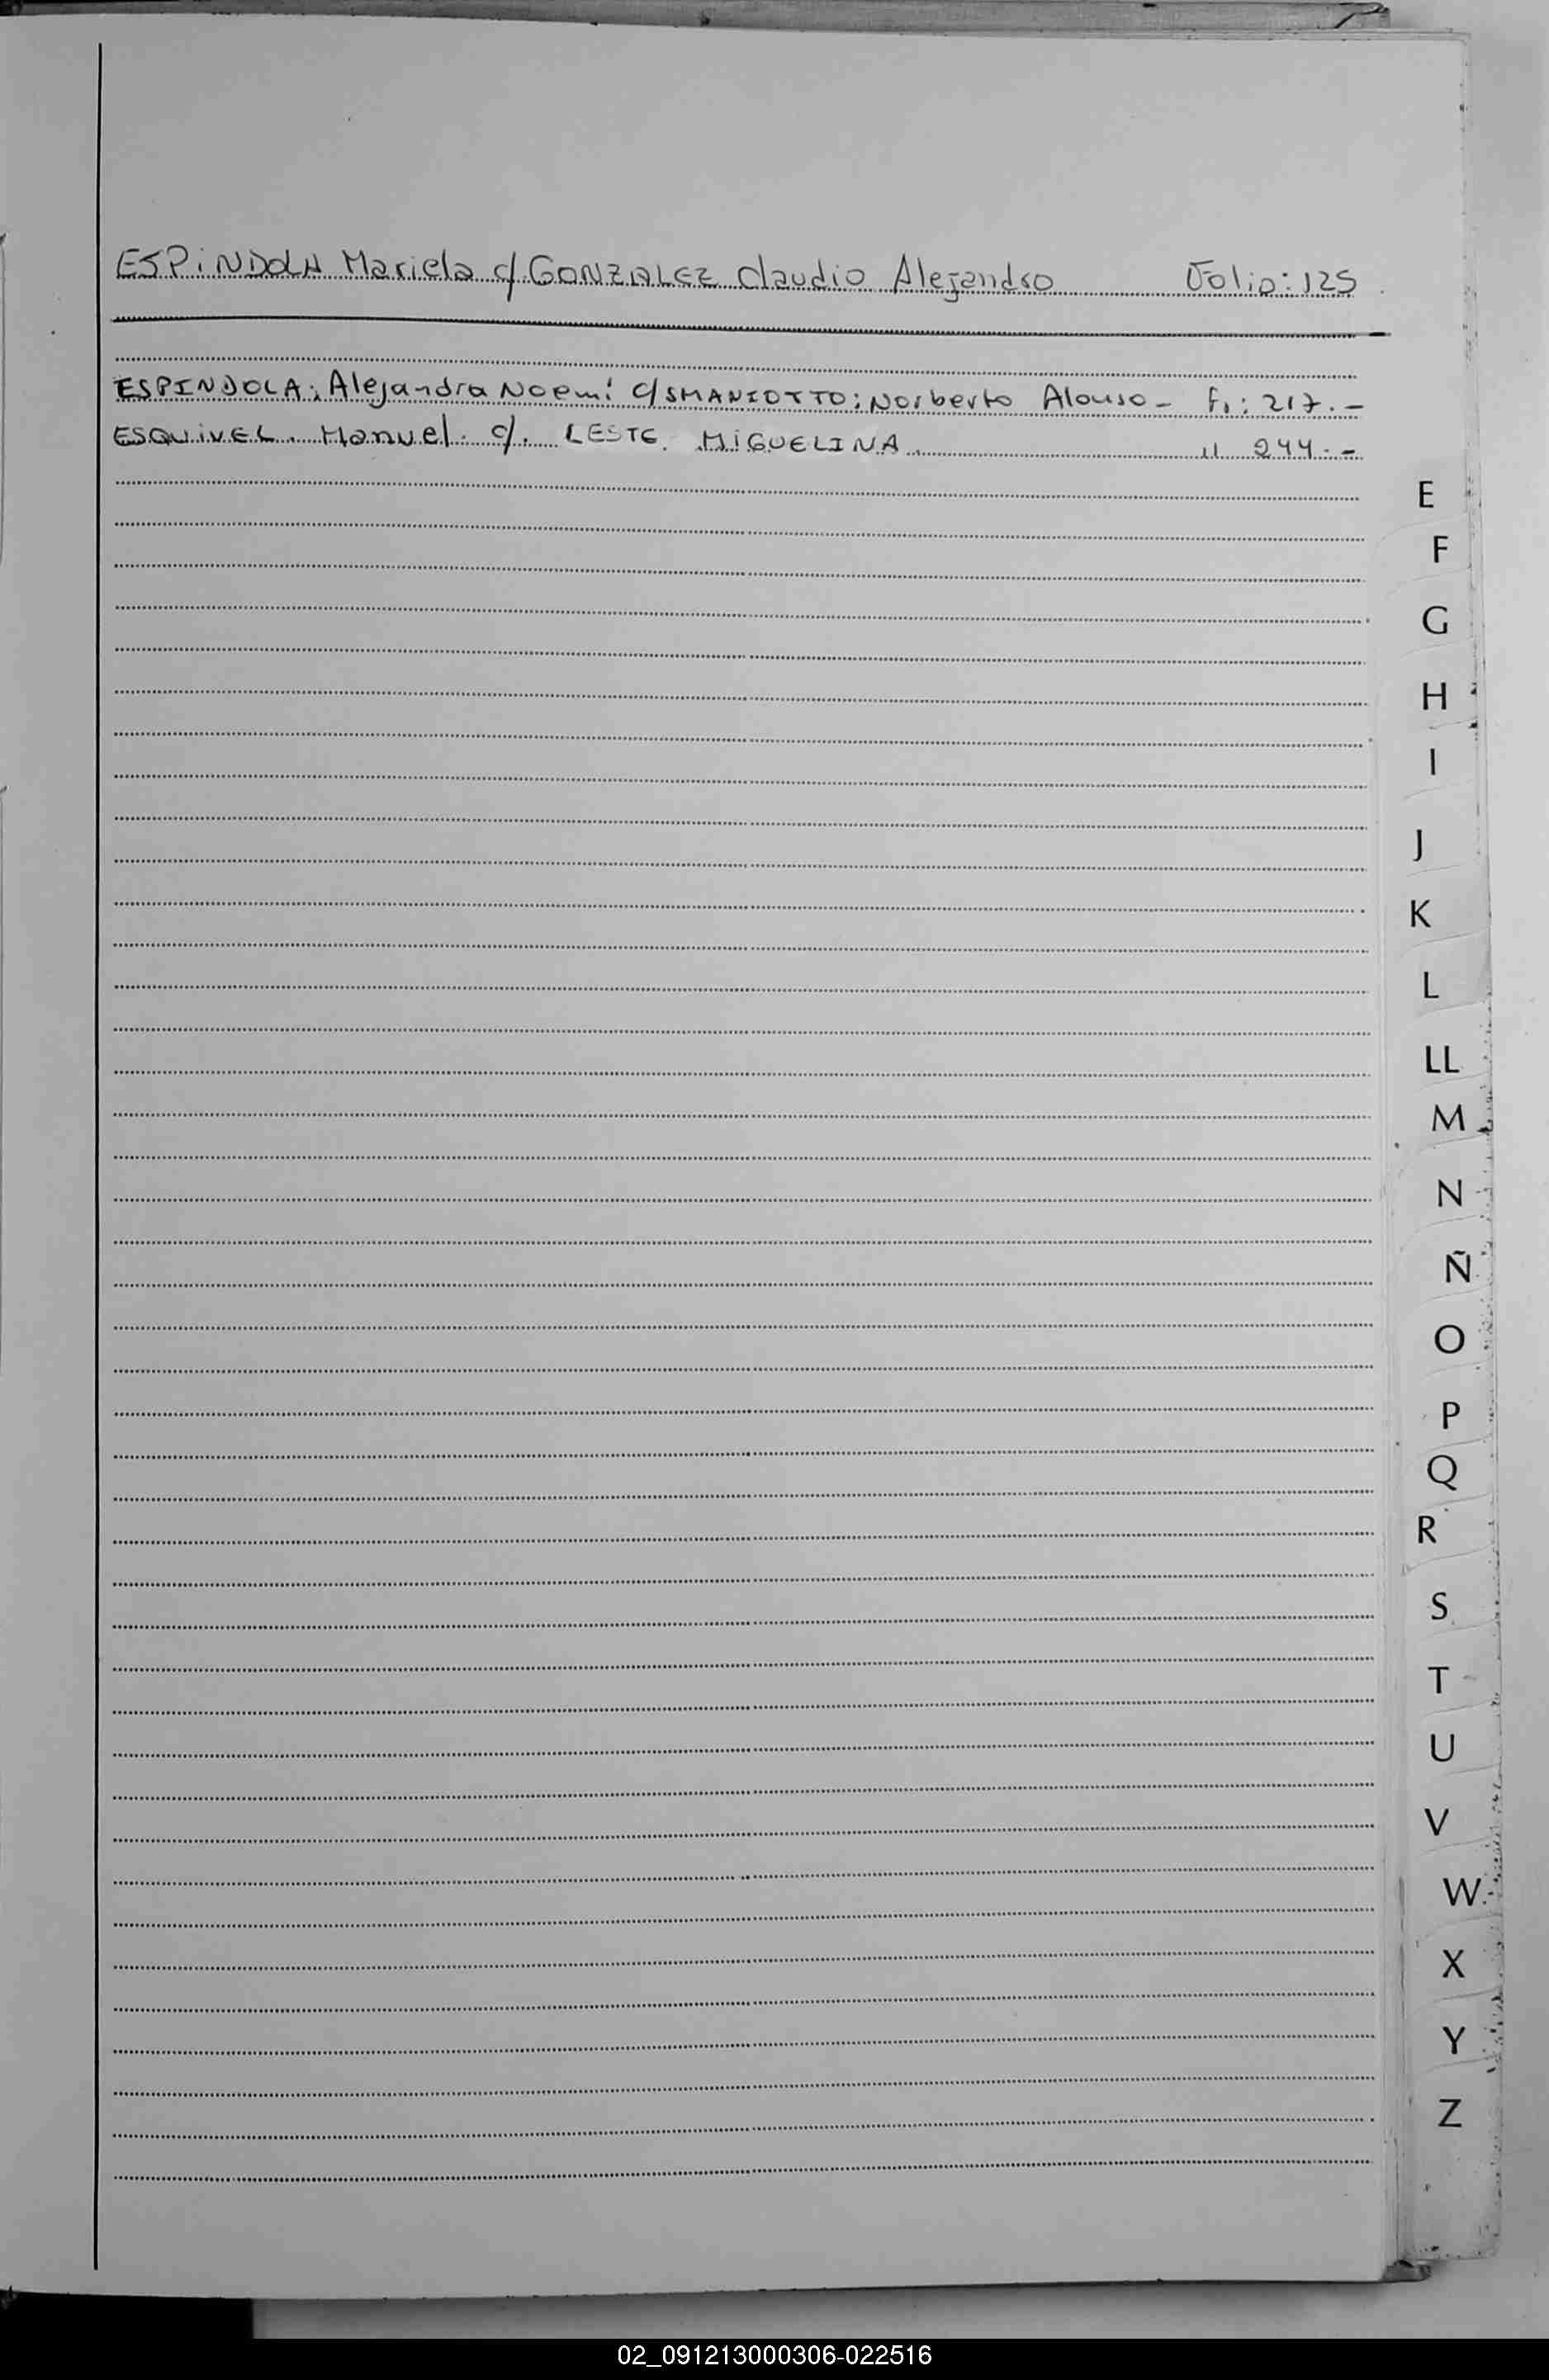 ESPiNDOLA Mariela c/ GONZALEZ Claudio Alejandro Folio: 125
ESPINDOLA; Alejandra Noemí c/ SMANIOTTO; Norberto Alonso - Fº: 217.-
ESQUiVEL. Manuel. c/. LESTE. MiGUELINA. " 244.-
E
F
G
H
I
J
K
L
LL
M
N
Ñ
O
P
Q
R
S
T
U
V
W
X
Y
Z
02_091213000306-022516